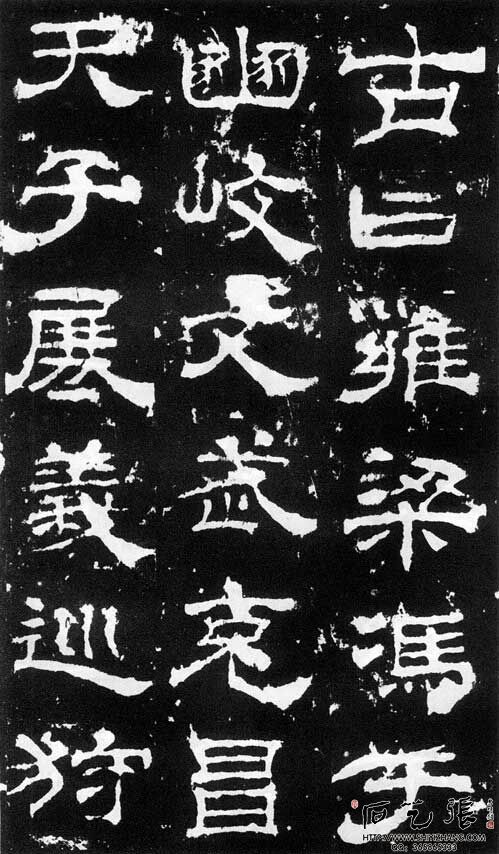 古曰雍梁馮于
豳岐文武克昌
天子展義巡狩
石艺張
HTTP://WWW.SHIYIZHANG.COM
QQ: